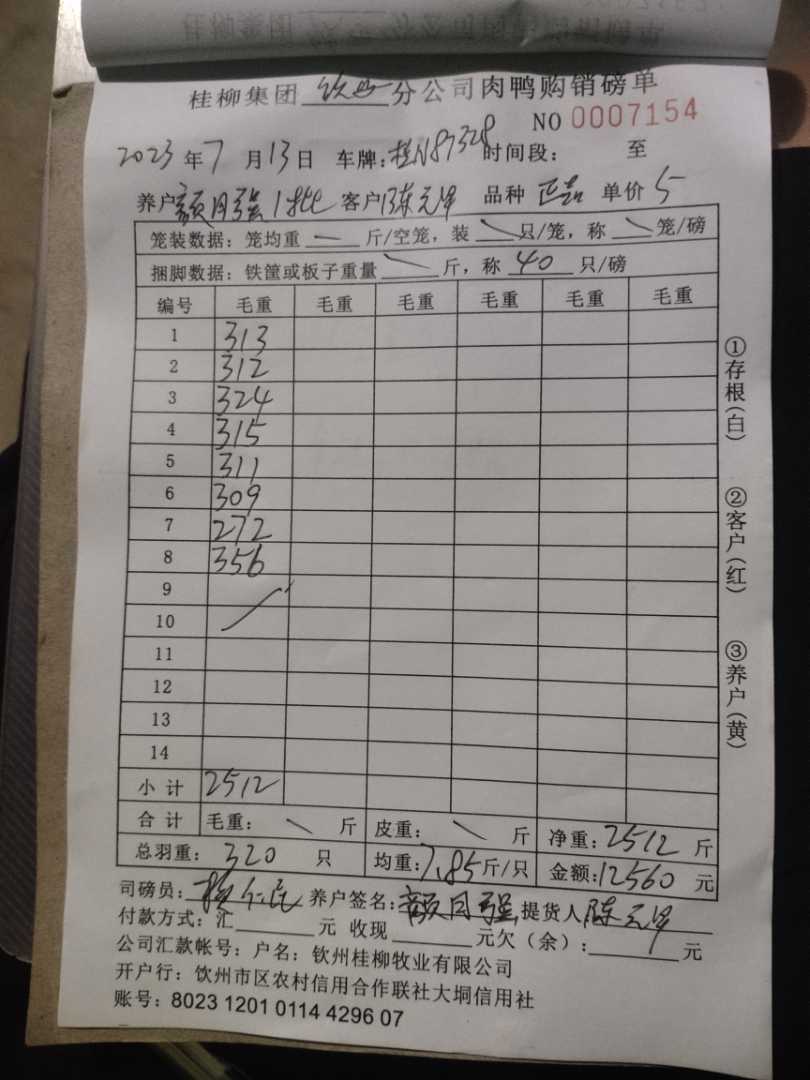 桂柳集团 钦州 分公司肉鸭购销磅单
NO 0007154
2023 年 7 月 13 日 车牌: 桂N87328 时间段: 至
养户 月强 1批 客户 陈元 品种 正品 单价 5
笼装数据: 笼均重 — 斤/空笼, 装 \ 只/笼, 称 \ 笼/磅
捆脚数据: 铁筐或板子重量 \ 斤, 称 40 只/磅
编号 毛重 毛重 毛重 毛重 毛重 毛重
1 313
2 312
3 324
4 315
5 311
6 309
7 272
8 356
9
10
11
12
13
14
小计 2512
合计 毛重: \ 斤 皮重: \ 斤 净重: 2512 斤
总羽重: 320 只 均重: 7.85 斤/只 金额: 12560 元
司磅员: 养户签名: 月强 提货人 陈元
付款方式: 汇 元 收现 元欠(余): 元
公司汇款帐号: 户名: 钦州桂柳牧业有限公司
开户行: 钦州市区农村信用合作联社大垌信用社
账号: 8023 1201 0114 4296 07
①存根(白)
②客户(红)
③养户(黄)